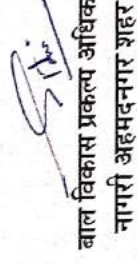 बाल विकास प्रकल्प अधिक
नागरी अहमदनगर शहर